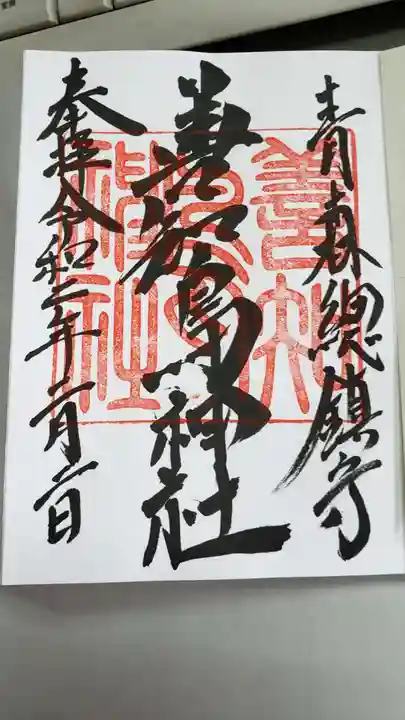 青森總鎮守
善知鳥神社
奉拝令和二年二月二日
善知鳥神社